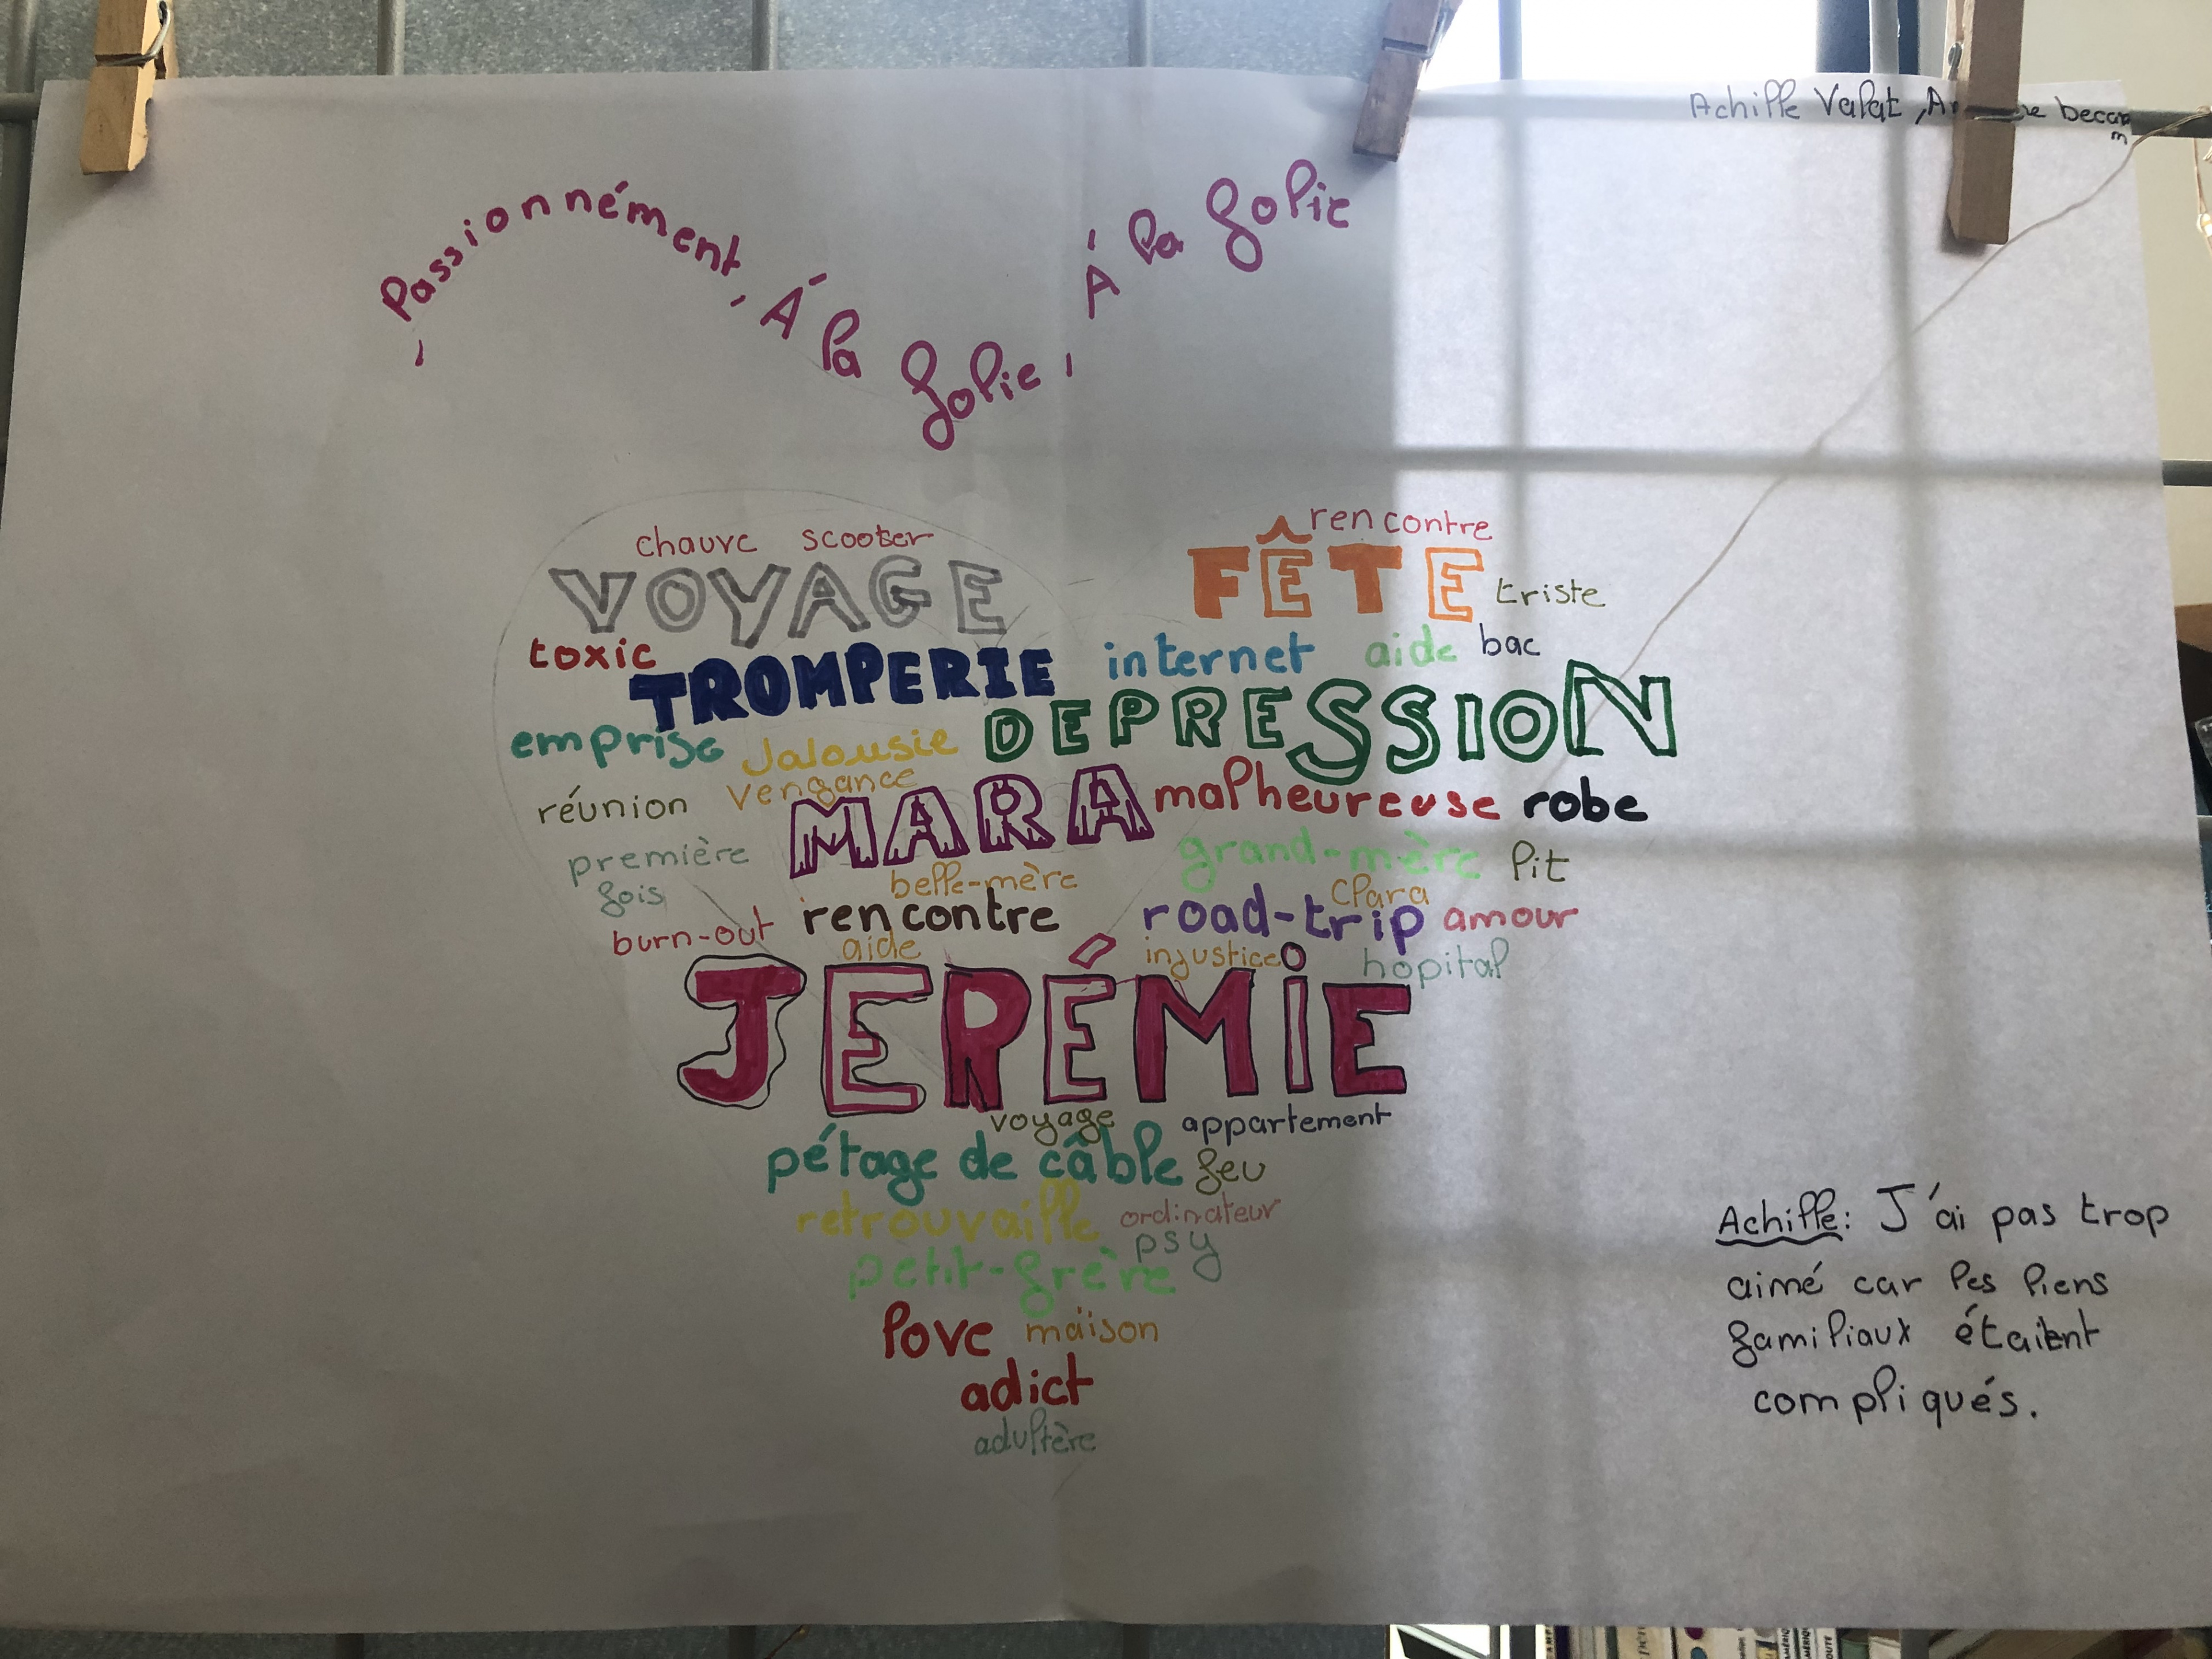 Achille Valat,
Passionnément, À la folie, À la folie
chauve scooter rencontre
VOYAGE FÊTE triste
toxic TROMPERIE internet aide bac
emprise Jalousie DEPRESSION
réunion vengance MARA malheureuse robe
première fois grand-mère lit
belle-mère Clara
burn-out rencontre road-trip amour
aide injustice hopital
JERÉMIE
voyage appartement
pétage de câble feu
retrouvaille ordinateur
psy
petit-frère
love maison
adict
adultère
Achille: J'ai pas trop
aimé car les liens
familiaux étaient
compliqués.